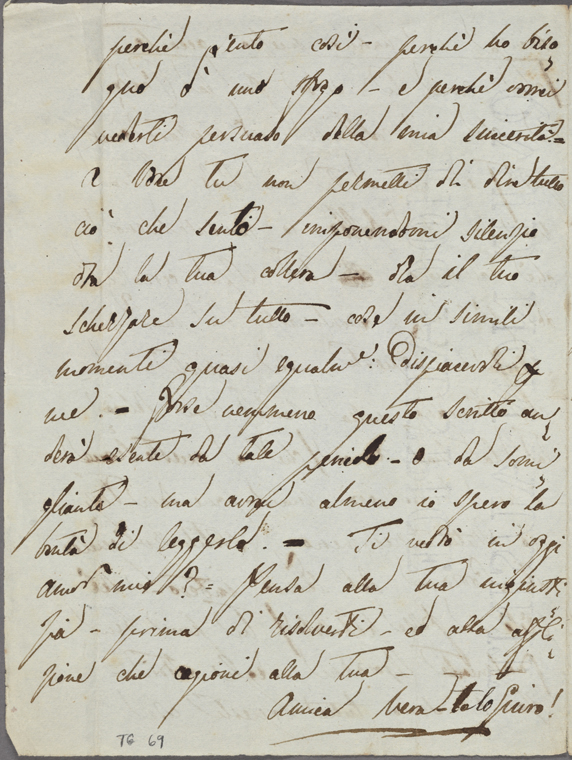 perchè sento così - perchè ho biso
gno d' uno sfogo - e perchè vorrei
vederti persuaso della mia sincerità. =
E dove tu non permetti di dire tutto
ciò che sento - imponendomi silenzio
ora la tua collera - ora il tuo
scherzare su tutto - cose in simili
momenti quasi egualme. Dispiacevoli p
me. - Forse nemmeno questo scritto an
derà esente da tale pericolo - o da somi
glianti - ma avrai almeno io spero la
bontà di leggerlo. - Ti vedrò in oggi
amor mio? = Pensa alla tua ingiusti
zia - prima di risolverti - ed alla affli
zione che cagioni alla tua -
Amica vera - te lo giuro!
TG 69